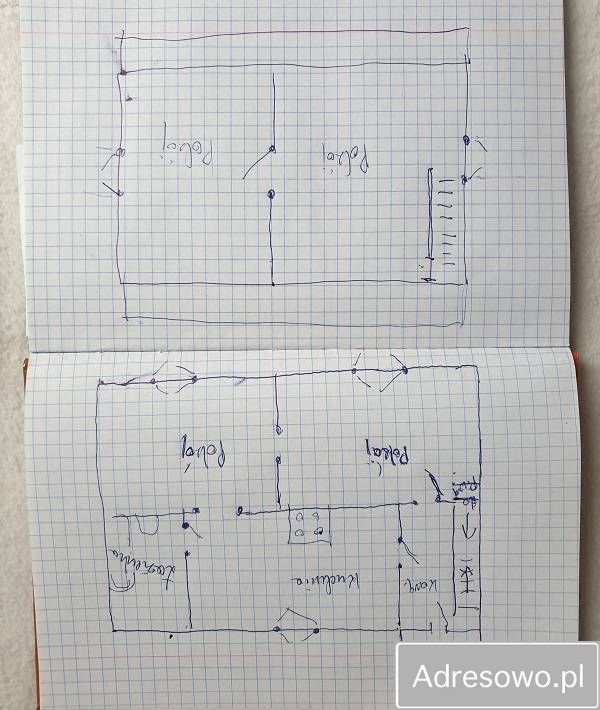 Pokój
Pokój
Pokój
Pokój
Łazienka
Kuchnia
Adresowo.pl